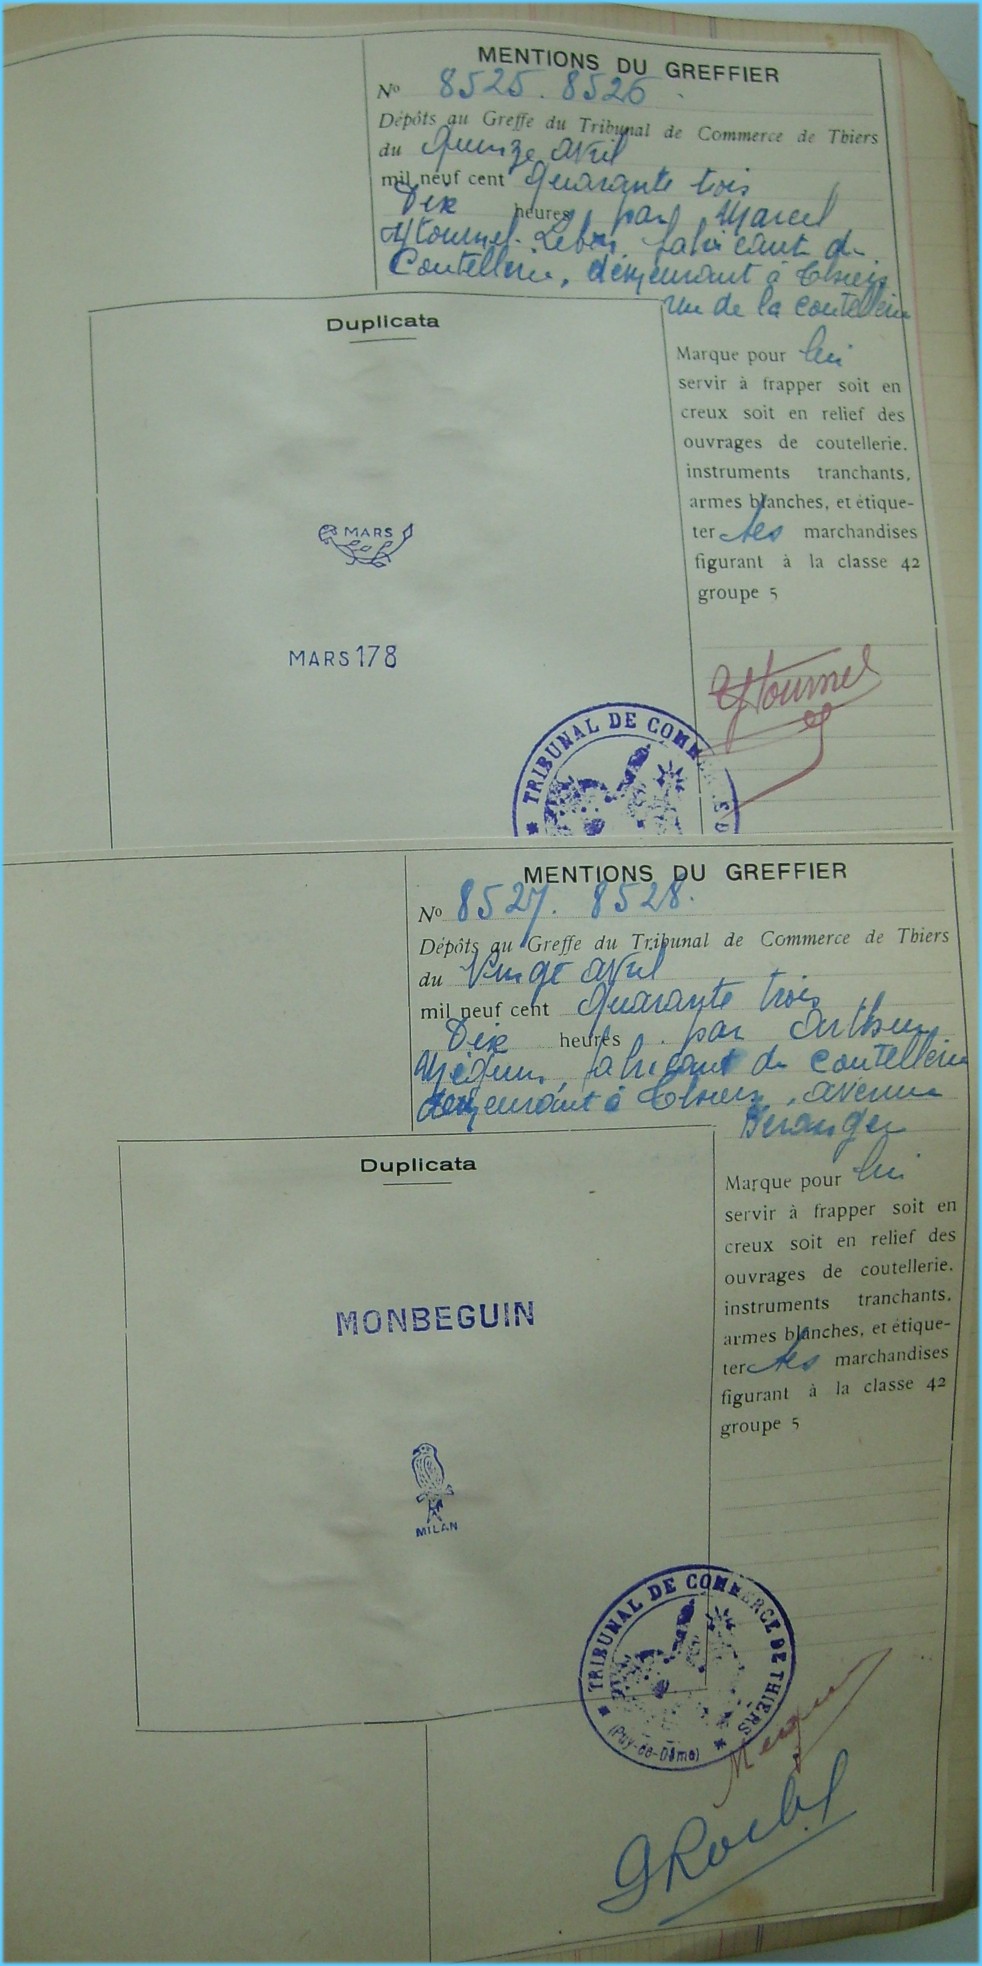 MENTIONS DU GREFFIER
No 8525. 8526
Dépôts au Greffe du Tribunal de Commerce de Thiers
du Quinze avril
mil neuf cent quarante trois
Dix heures par Marcel
fabricant de
Coutellerie, demeurant à Thiers
rue de la coutellerie
Duplicata
Marque pour lui
servir à frapper soit en
creux soit en relief des
ouvrages de coutellerie.
instruments tranchants,
armes blanches, et étique-
ter les marchandises
figurant à la classe 42
groupe 5
MARS
MARS 178
TRIBUNAL DE COMM
MENTIONS DU GREFFIER
No 8527. 8528.
Dépôts au Greffe du Tribunal de Commerce de Thiers
du Vingt avril
mil neuf cent quarante trois
Dix heures par Arthur
fabricant de coutellerie
demeurant à Thiers, avenue
Béranger
Duplicata
Marque pour lui
servir à frapper soit en
creux soit en relief des
ouvrages de coutellerie.
instruments tranchants,
armes blanches, et étique-
ter les marchandises
figurant à la classe 42
groupe 5
MONBEGUIN
MILAN
TRIBUNAL DE COMMERCE DE THIERS
(Puy-de-Dôme)